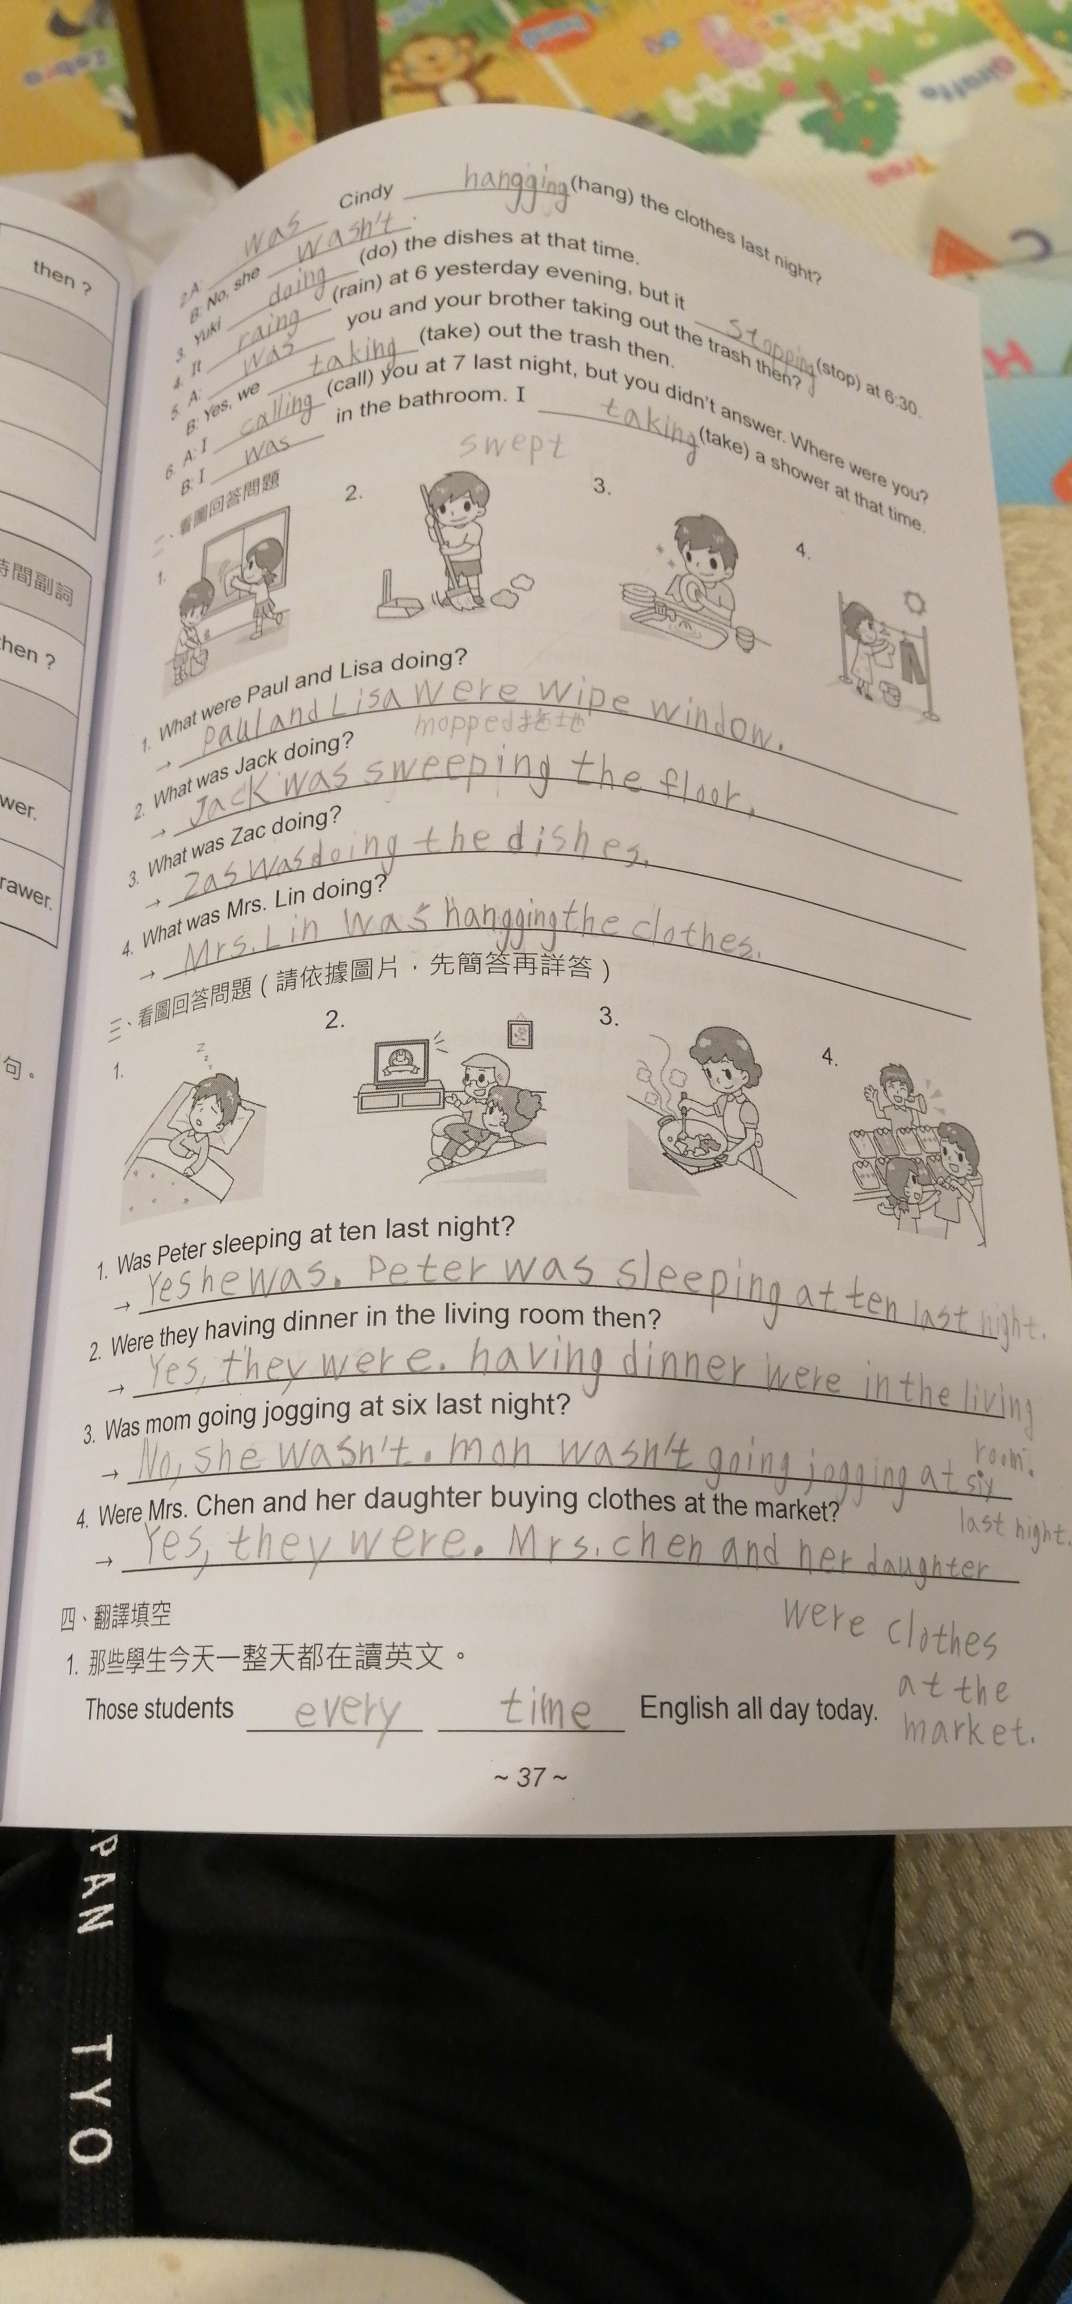 then ?
時間副詞
then ?
wer.
rawer.
句。
2. A: was Cindy hangging (hang) the clothes last night?
B: No, she wasn't.
3. Yuki doing (do) the dishes at that time.
4. It raing (rain) at 6 yesterday evening, but it stopping (stop) at 6:30.
5. A: was you and your brother taking out the trash then?
B: Yes, we taking (take) out the trash then.
6. A: I calling (call) you at 7 last night, but you didn't answer. Where were you?
B: I was in the bathroom. I taking (take) a shower at that time.
二、看圖回答問題
swept
1.
2.
3.
4.
1. What were Paul and Lisa doing?
→ paul and Lisa were wipe window.
mopped 拖地
2. What was Jack doing?
→ Jack was sweeping the floor,
3. What was Zac doing?
→ Zas was doing the dishes.
4. What was Mrs. Lin doing?
→ Mrs. Lin was hangging the clothes.
三、看圖回答問題（請依據圖片，先簡答再詳答）
1.
2.
3.
4.
z z z
1. Was Peter sleeping at ten last night?
→ Yes he was. Peter was sleeping at ten last night.
2. Were they having dinner in the living room then?
→ Yes, they were. having dinner were in the living
room.
3. Was mom going jogging at six last night?
→ No, she wasn't. mon wasn't going jogging at six
last night.
4. Were Mrs. Chen and her daughter buying clothes at the market?
→ Yes, they were. Mrs. chen and her daughter
were clothes
at the
market.
四、翻譯填空
1. 那些學生今天一整天都在讀英文。
Those students every time English all day today.
~ 37 ~
PAN TYO
Giraffe
Tree
Zebra